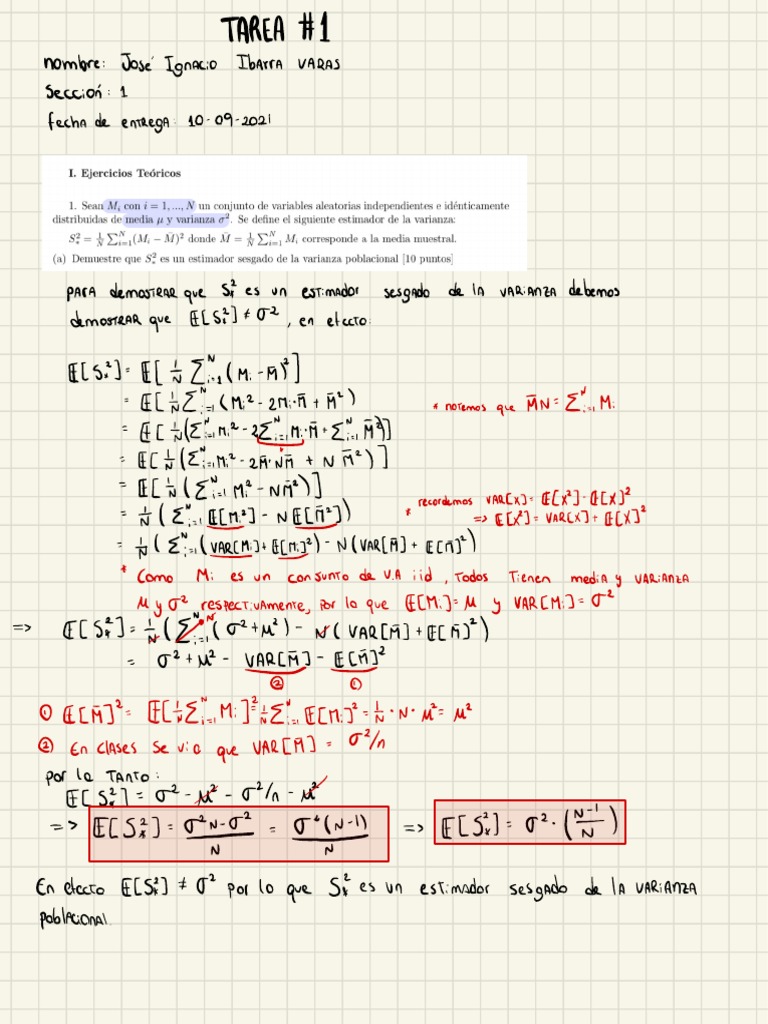 TAREA #1
nombre: José Ignacio Ibarra VARAS
Sección: 1
fecha de entrega: 10-09-2021
I. Ejercicios Teóricos
1. Sean M_i con i = 1, ..., N un conjunto de variables aleatorias independientes e idénticamente
distribuidas de media μ y varianza σ². Se define el siguiente estimador de la varianza:
S²_* = 1/N ∑^N_{i=1}(M_i − M̄)² donde M̄ = 1/N ∑^N_{i=1} M_i corresponde a la media muestral.
(a) Demuestre que S²_* es un estimador sesgado de la varianza poblacional [10 puntos]
PARA demostrar que S²_* es un estimador sesgado de la varianza debemos
demostrar que E[S²_*] ≠ σ², en efecto:
E[S²_*] = E[1/N ∑^N_{i=1}(M_i - M̄)²]
= E[1/N ∑^N_{i=1}(M_i² - 2M_i·M̄ + M̄²)
* notemos que M̄N = ∑^N_{i=1} M_i
= E[1/N(∑^N_{i=1} M_i² - 2∑^N_{i=1} M_i·M̄ + ∑^N_{i=1} M̄²)]
= E[1/N(∑^N_{i=1} M_i² - 2M̄·NM̄ + NM̄²)]
= E[1/N(∑^N_{i=1} M_i² - NM̄²)]
* recordemos VAR[X] = E[X²] - E[X]²
=> E[X²] = VAR[X] + E[X]²
= 1/N(∑^N_{i=1} E[M_i²] - N E[M̄²])
= 1/N(∑^N_{i=1}(VAR[M_i] + E[M_i]²) - N(VAR[M̄] + E[M̄]²)
* Como M_i es un conjunto de V.A iid, Todos Tienen media y varianza
μ y σ² respectivamente, por lo que E[M_i] = μ y VAR[M_i] = σ²
=> E[S²_*] = 1/N(∑^N_{i=1} N(σ² + μ²) - N(VAR[M̄] + E[M̄]²)
= σ² + μ² - VAR[M̄] - E[M̄]²
② ①
① E[M̄]² = E[1/N ∑^N_{i=1} M_i]² = 1/N ∑^N_{i=1} E[M_i]² = 1/N · N · μ² = μ²
② En clases se vio que VAR[M̄] = σ²/n
por lo TANTO:
E[S²_*] = σ² - μ² - σ²/n - μ²
=> E[S²_*] = (σ²N - σ²)/N = σ²(N-1)/N => E[S²_*] = σ² · (N-1/N)
En efecto E[S²_*] ≠ σ² por lo que S²_* es un estimador sesgado de la varianza
poblacional.